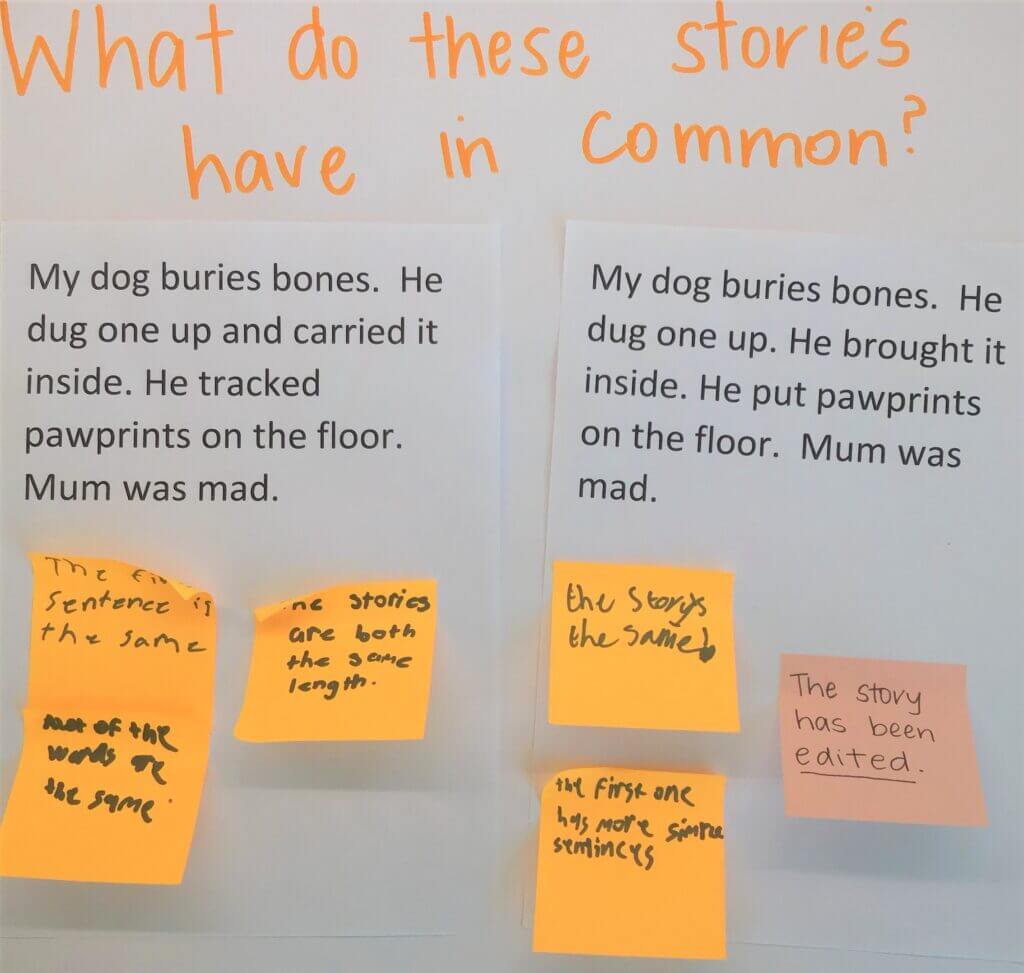 What do these stories
have in common?
My dog buries bones.  He
dug one up and carried it
inside. He tracked
pawprints on the floor.
Mum was mad.
My dog buries bones.  He
dug one up. He brought it
inside. He put pawprints
on the floor.  Mum was
mad.
The
sentence is
the same
of the
words are
the same.
stories
are both
the same
length.
the storys
the same!
the first one
has more simple
The story
has been
edited.